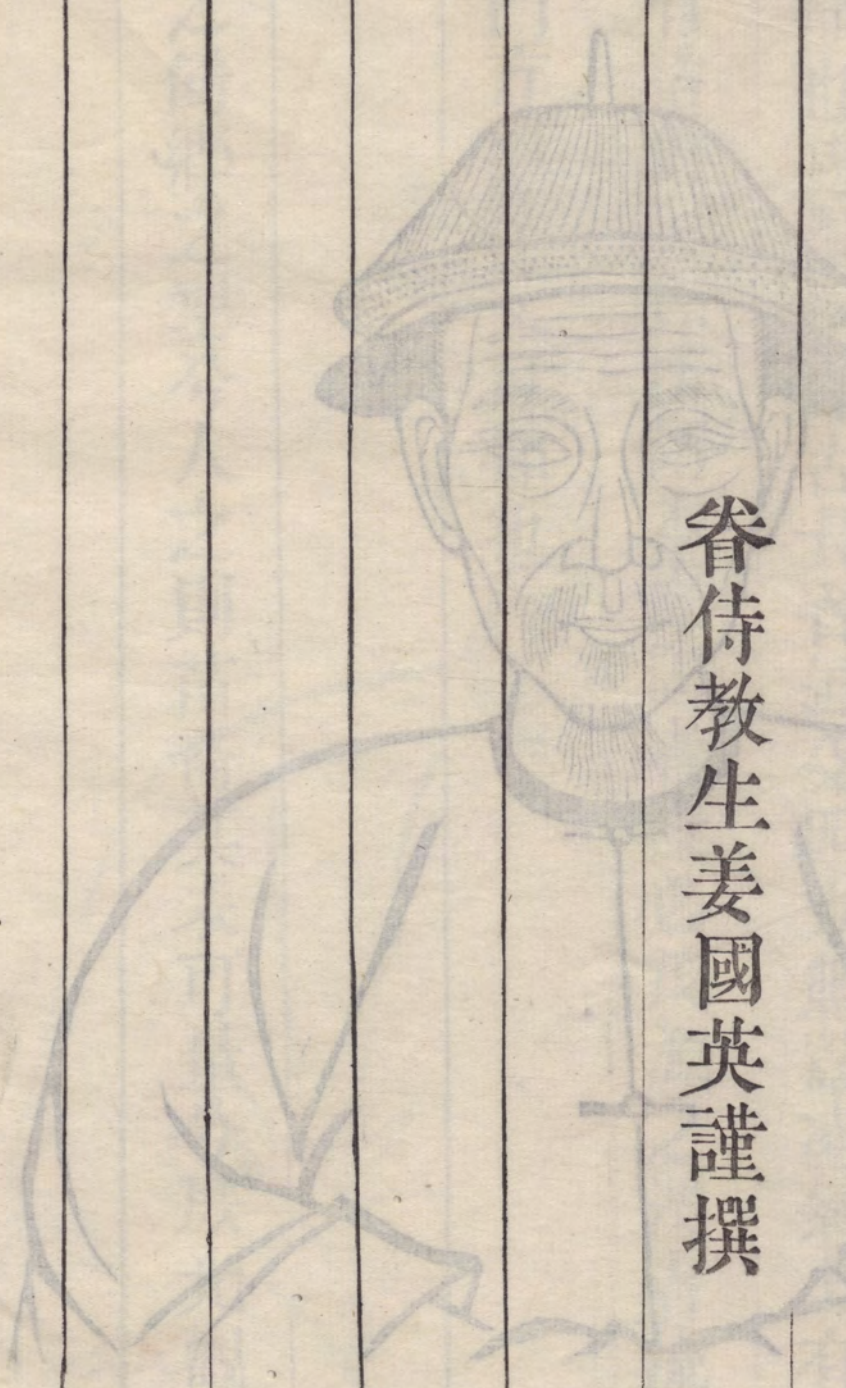 眷侍教生姜國英謹撰